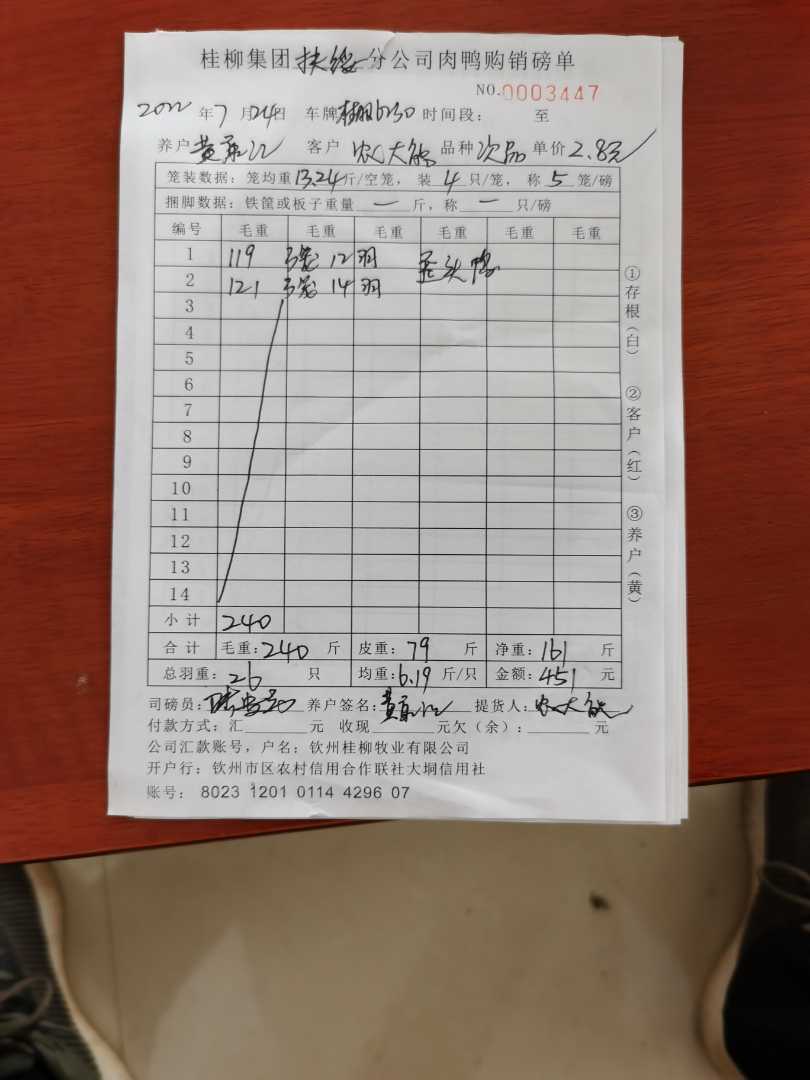 桂柳集团扶绥分公司肉鸭购销磅单
NO.0003447
2022年7月24日 车牌 时间段： 至
养户 客户 农大能 品种 次品 单价 2.8元
笼装数据：笼均重13.24斤/空笼，装4只/笼，称5笼/磅
捆脚数据：铁筐或板子重量一斤，称一只/磅
编号 毛重 毛重 毛重 毛重 毛重 毛重
1 119 3笼 12羽 歪头鸭
2 121 3笼 14羽
3
4
5
6
7
8
9
10
11
12
13
14
小计 240
合计 毛重：240斤 皮重：79斤 净重：161斤
总羽重：26只 均重：6.19斤/只 金额：451元
司磅员： 养户签名： 提货人：农大能
付款方式：汇 元 收现 元欠（余）： 元
公司汇款账号，户名：钦州桂柳牧业有限公司
开户行：钦州市区农村信用合作联社大垌信用社
账号：8023 1201 0114 4296 07
①存根（白）
②客户（红）
③养户（黄）